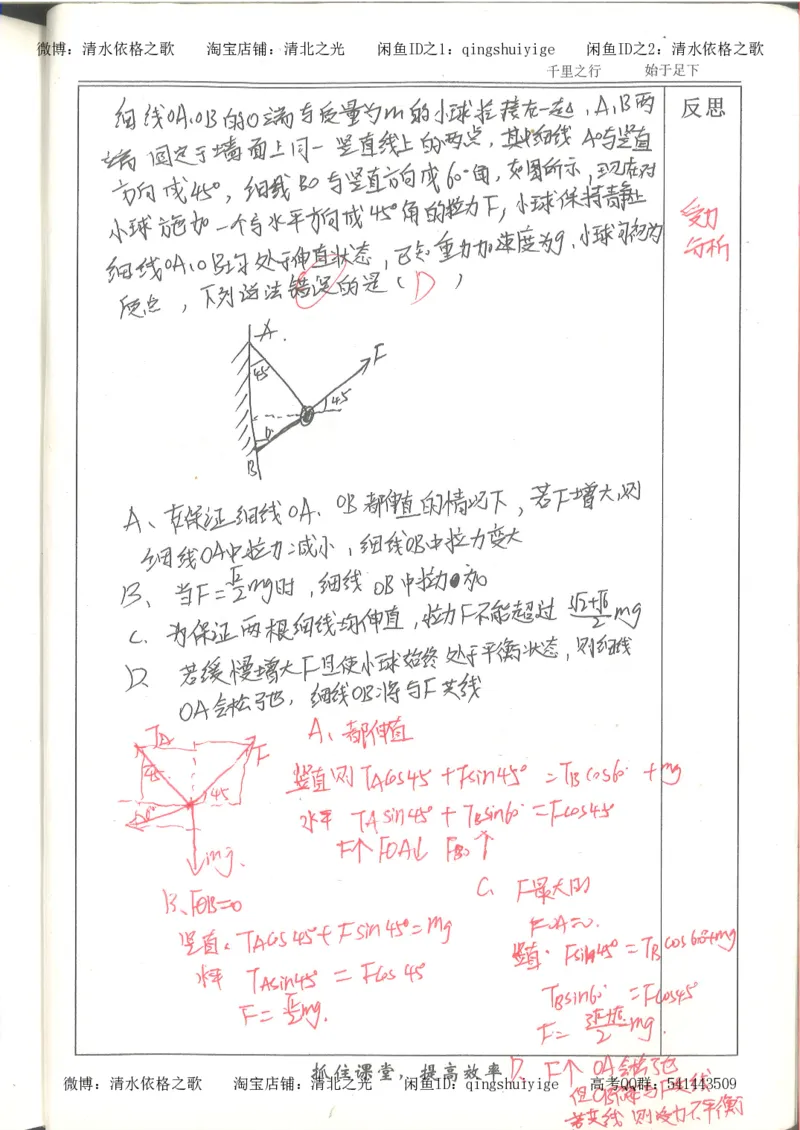 微博：清水依格之歌 淘宝店铺：清北之光 闲鱼ID之1：qingshuiyige 闲鱼ID之2：清水依格之歌
千里之行 始于足下
反思
细线OA、OB的O端与质量为m的小球拴接在一起，A、B两
端固定于墙面上同一竖直线上的两点，其中细线AO与竖直
方向成45°，细线BO与竖直方向成60°角，如图所示，现在对
小球施加一个与水平方向成45°角的拉力F，小球保持静止
细线OA、OB均处于伸直状态，已知重力加速度为g，小球可视为
质点，下列说法错误的是（D）
受力
分析
A
45
F
45
B
A、在保证细线OA、OB都伸直的情况下，若F增大，则
细线OA中拉力减小，细线OB中拉力变大
B、当F=√2/2mg时，细线OB中拉力为0
C、为保证两根细线均伸直，拉力F不能超过 (3√2+√6)/2 mg
D、若缓慢增大F且使小球始终处于平衡状态，则细线
OA会松弛，细线OB将与F共线
TA
F
45
45
60°
mg
A、都伸直
竖直则 TAcos45+Fsin45°=TBcos60°+mg
水平 TAsin45°+TBsin60°=Fcos45°
F↑ FOA↓ FOB↑
B、FOB=0
竖直：TAcos45°+Fsin45°=mg
水平 TAsin45°=Fcos45°
F=√2/2mg.
C、F最大时
FOA=0.
竖直：Fsin45°=TBcos60°+mg
TBsin60°=Fcos45°
F=(3√2+√6)/2 mg.
D、F↑ OA会松弛
但OB不能与F共线
若共线 则受力不平衡
抓住课堂，提高效率
微博：清水依格之歌 淘宝店铺：清北之光 闲鱼ID：qingshuiyige 高考QQ群：541443509